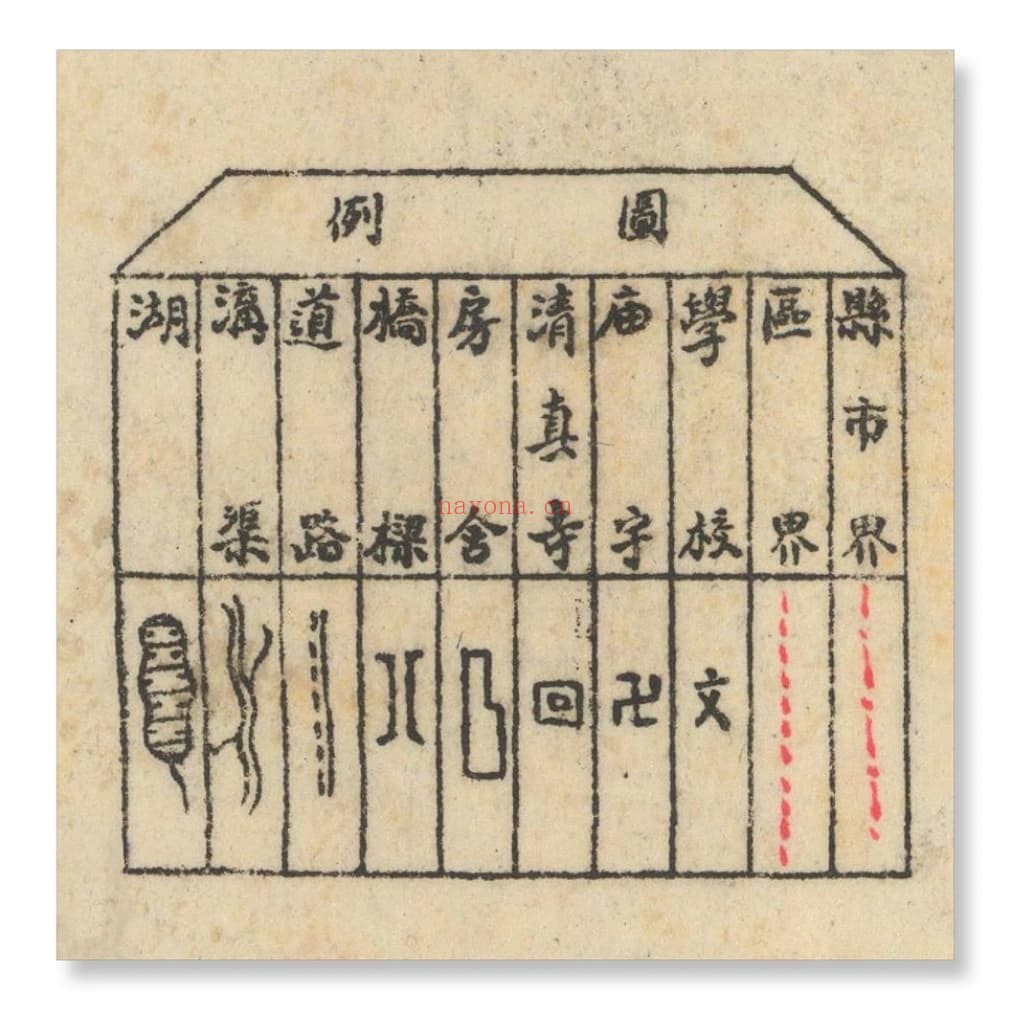 圖例
縣市界
區界
學校
庙宇
清真寺
房舍
橋樑
道路
溝渠
湖
文
卍
回
nayona.cn